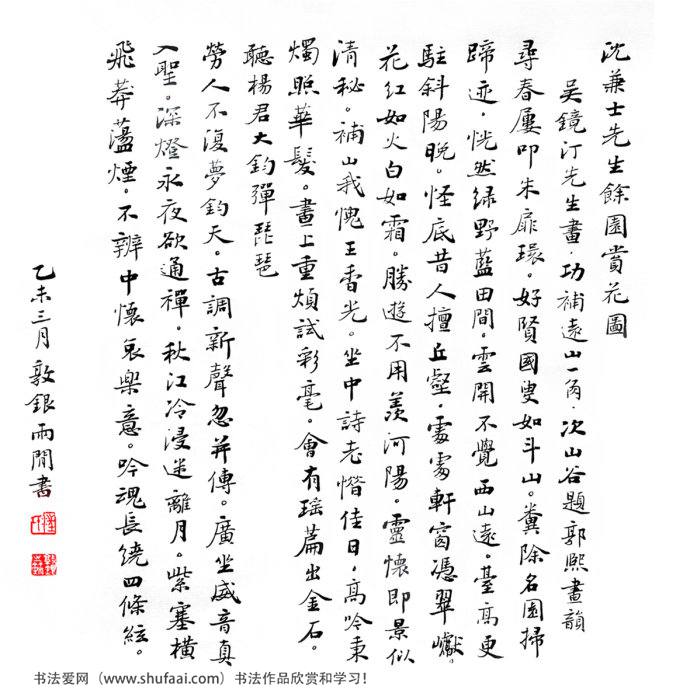 沈兼士先生餘園賞花圖
吴鏡汀先生畫·功補遠山一角·次山谷題郭熙畫韻
尋春屢叩朱扉環。好賢國叟如斗山。糞除名園掃
蹄迹·恍然绿野藍田間·雲開不覺西山遠。臺高更
駐斜陽晚。怪底昔人擅丘壑·處處軒窗憑翠巘。
花紅如火白如霜。勝遊不用羨河陽。靈懷即景似
清秘。補山我愧王香光。坐中詩老惜佳日，高吟秉
燭照華髮。畫上重煩試彩毫。會有瑶篇出金石。
聽楊君大鈞彈琵琶
勞人不復夢鈞天。古調新聲忽并傳。廣坐威音真
入聖。深燈永夜欲通禪。秋江冷浸迷離月。紫塞橫
飛莽蕩煙。不辨中懷哀樂意。吟魂長绕四條絃。
乙未三月敦銀雨閒書
书法爱网（www.shufaai.com）书法作品欣赏和学习！